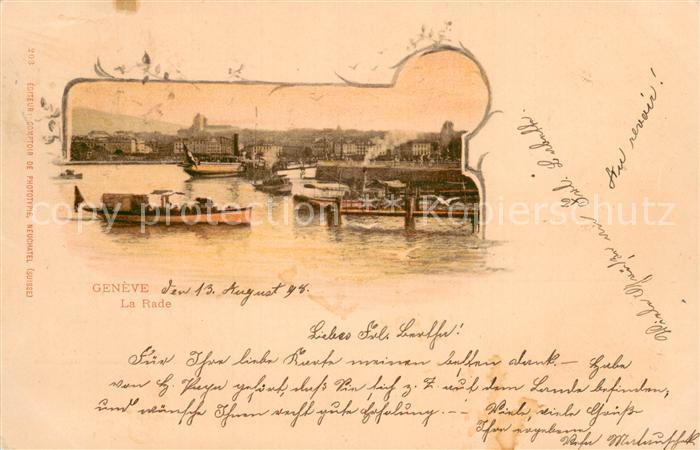 203 EDITEUR: COMPTOIR DE PHOTOTYPIE, NEUCHATEL (SUISSE)
GENÈVE
La Rade
den 13. August 98.
Liebes Frl. Bertha!
Für Ihre liebe Karte meinen besten Dank. — Habe
von H. gehört, daß Sie sich z. Z. auf dem Lande befinden,
und wünsche Ihnen recht gute Erholung. — — Viele, viele Grüß-
Ihre ergebene
Au revoir!
Viele Grüße
© Copyright ** Rest-Kopierschutz